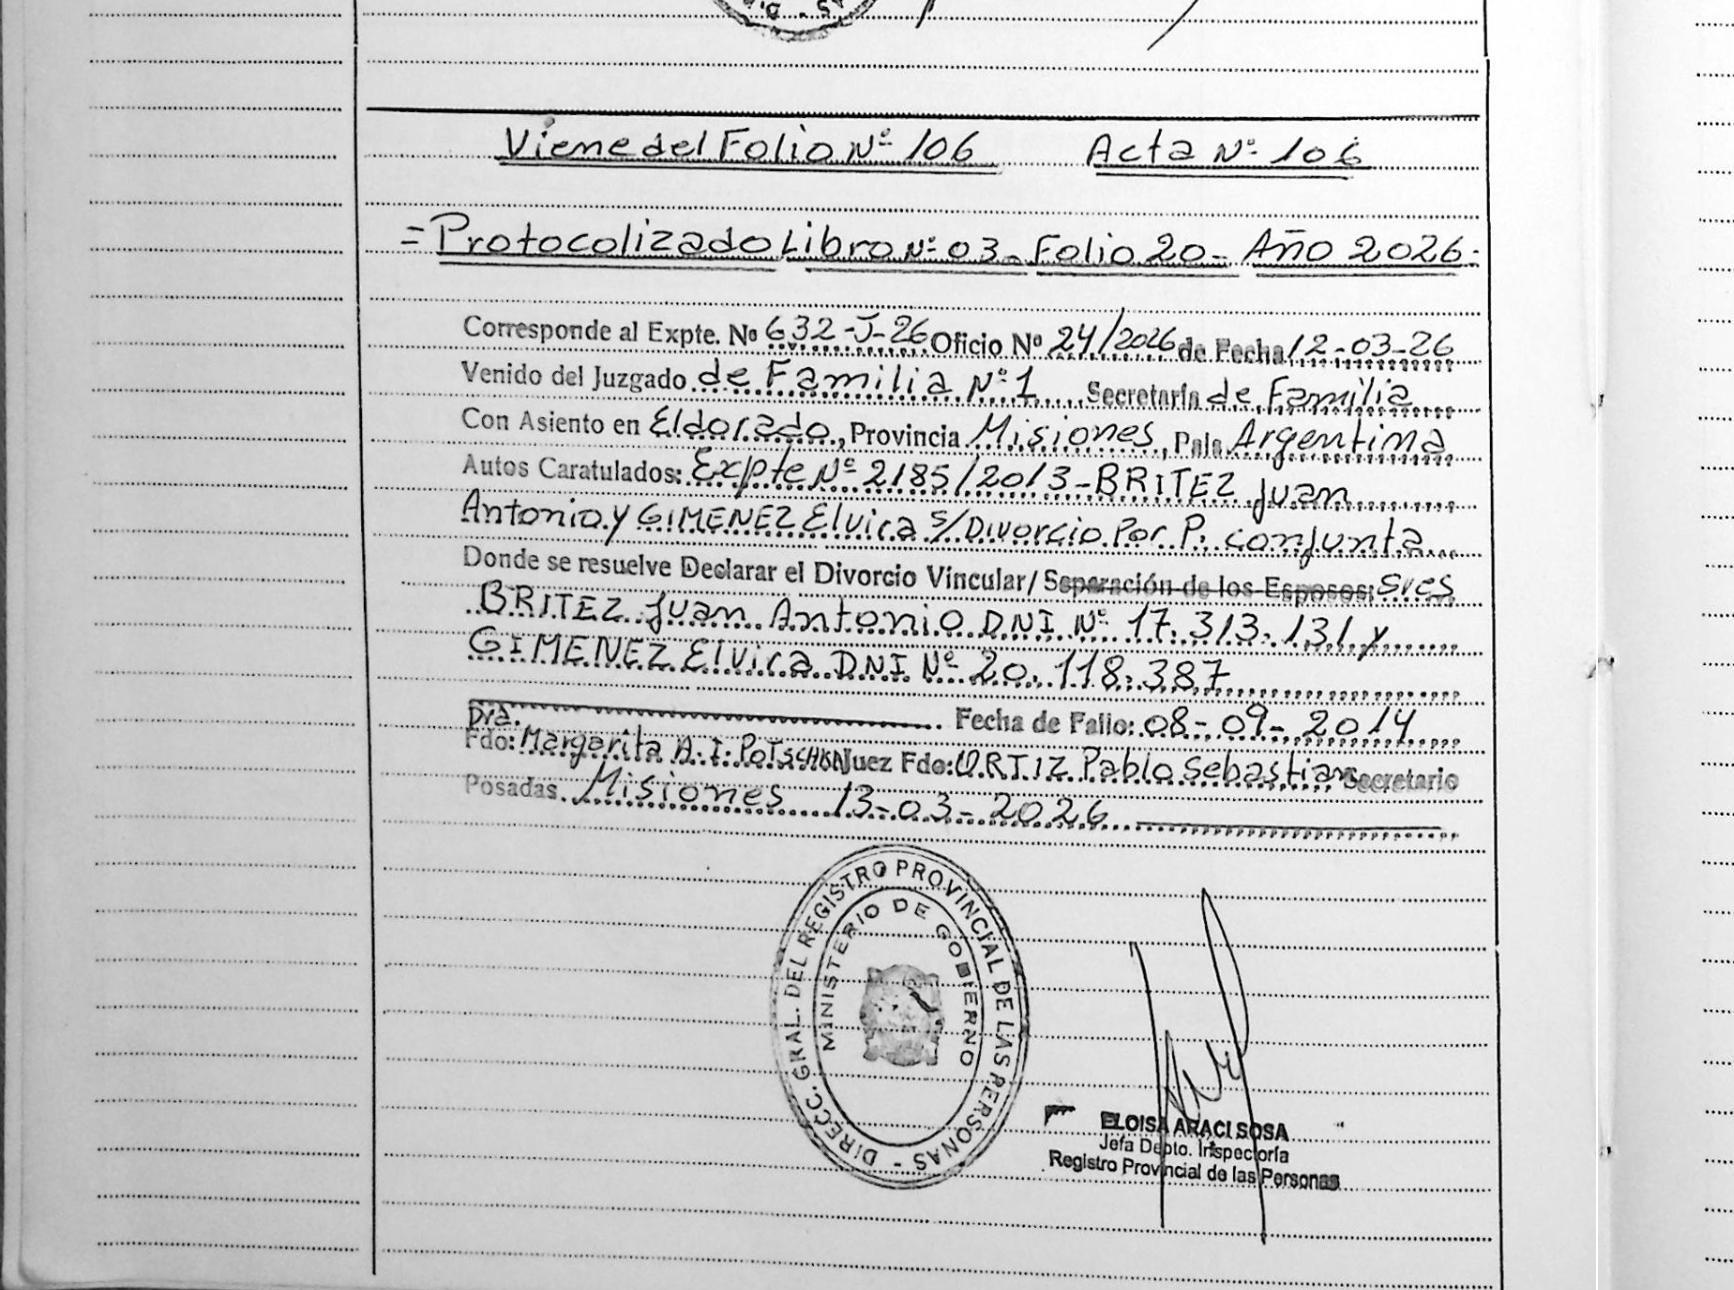 Viene del Folio Nº 106 Acta Nº 106
= Protocolizado Libro Nº 03 - Folio 20 - Año 2026 -
Corresponde al Expte. Nº 632-J-26 Oficio Nº 24/2026 de Fecha 12-03-26
Venido del Juzgado de Familia Nº 1 Secretaría de Familia
Con Asiento en Eldorado, Provincia Misiones, País Argentina
Autos Caratulados: Expte Nº 2185/2013 - BRITEZ Juan
Antonio y GIMENEZ Elvira s/ Divorcio Por P. conjunta
Donde se resuelve Declarar el Divorcio Vincular/ Separación de los Esposos: Sres
BRITEZ Juan Antonio DNI Nº 17.313.131 y
GIMENEZ Elvira DNI Nº 20.118.387
Fecha de Fallo: 08-09-2014
Dra.
Fdo: Margarita A. I. Juez Fdo: ORTIZ Pablo Sebastian Secretario
Posadas Misiones 13-03-2026
DIRECC. GRAL. DEL REGISTRO PROVINCIAL DE LAS PERSONAS -
MINISTERIO DE GOBIERNO
ELOISA ARACI SOSA
Jefa Dpto. Inspectoría
Registro Provincial de las Personas